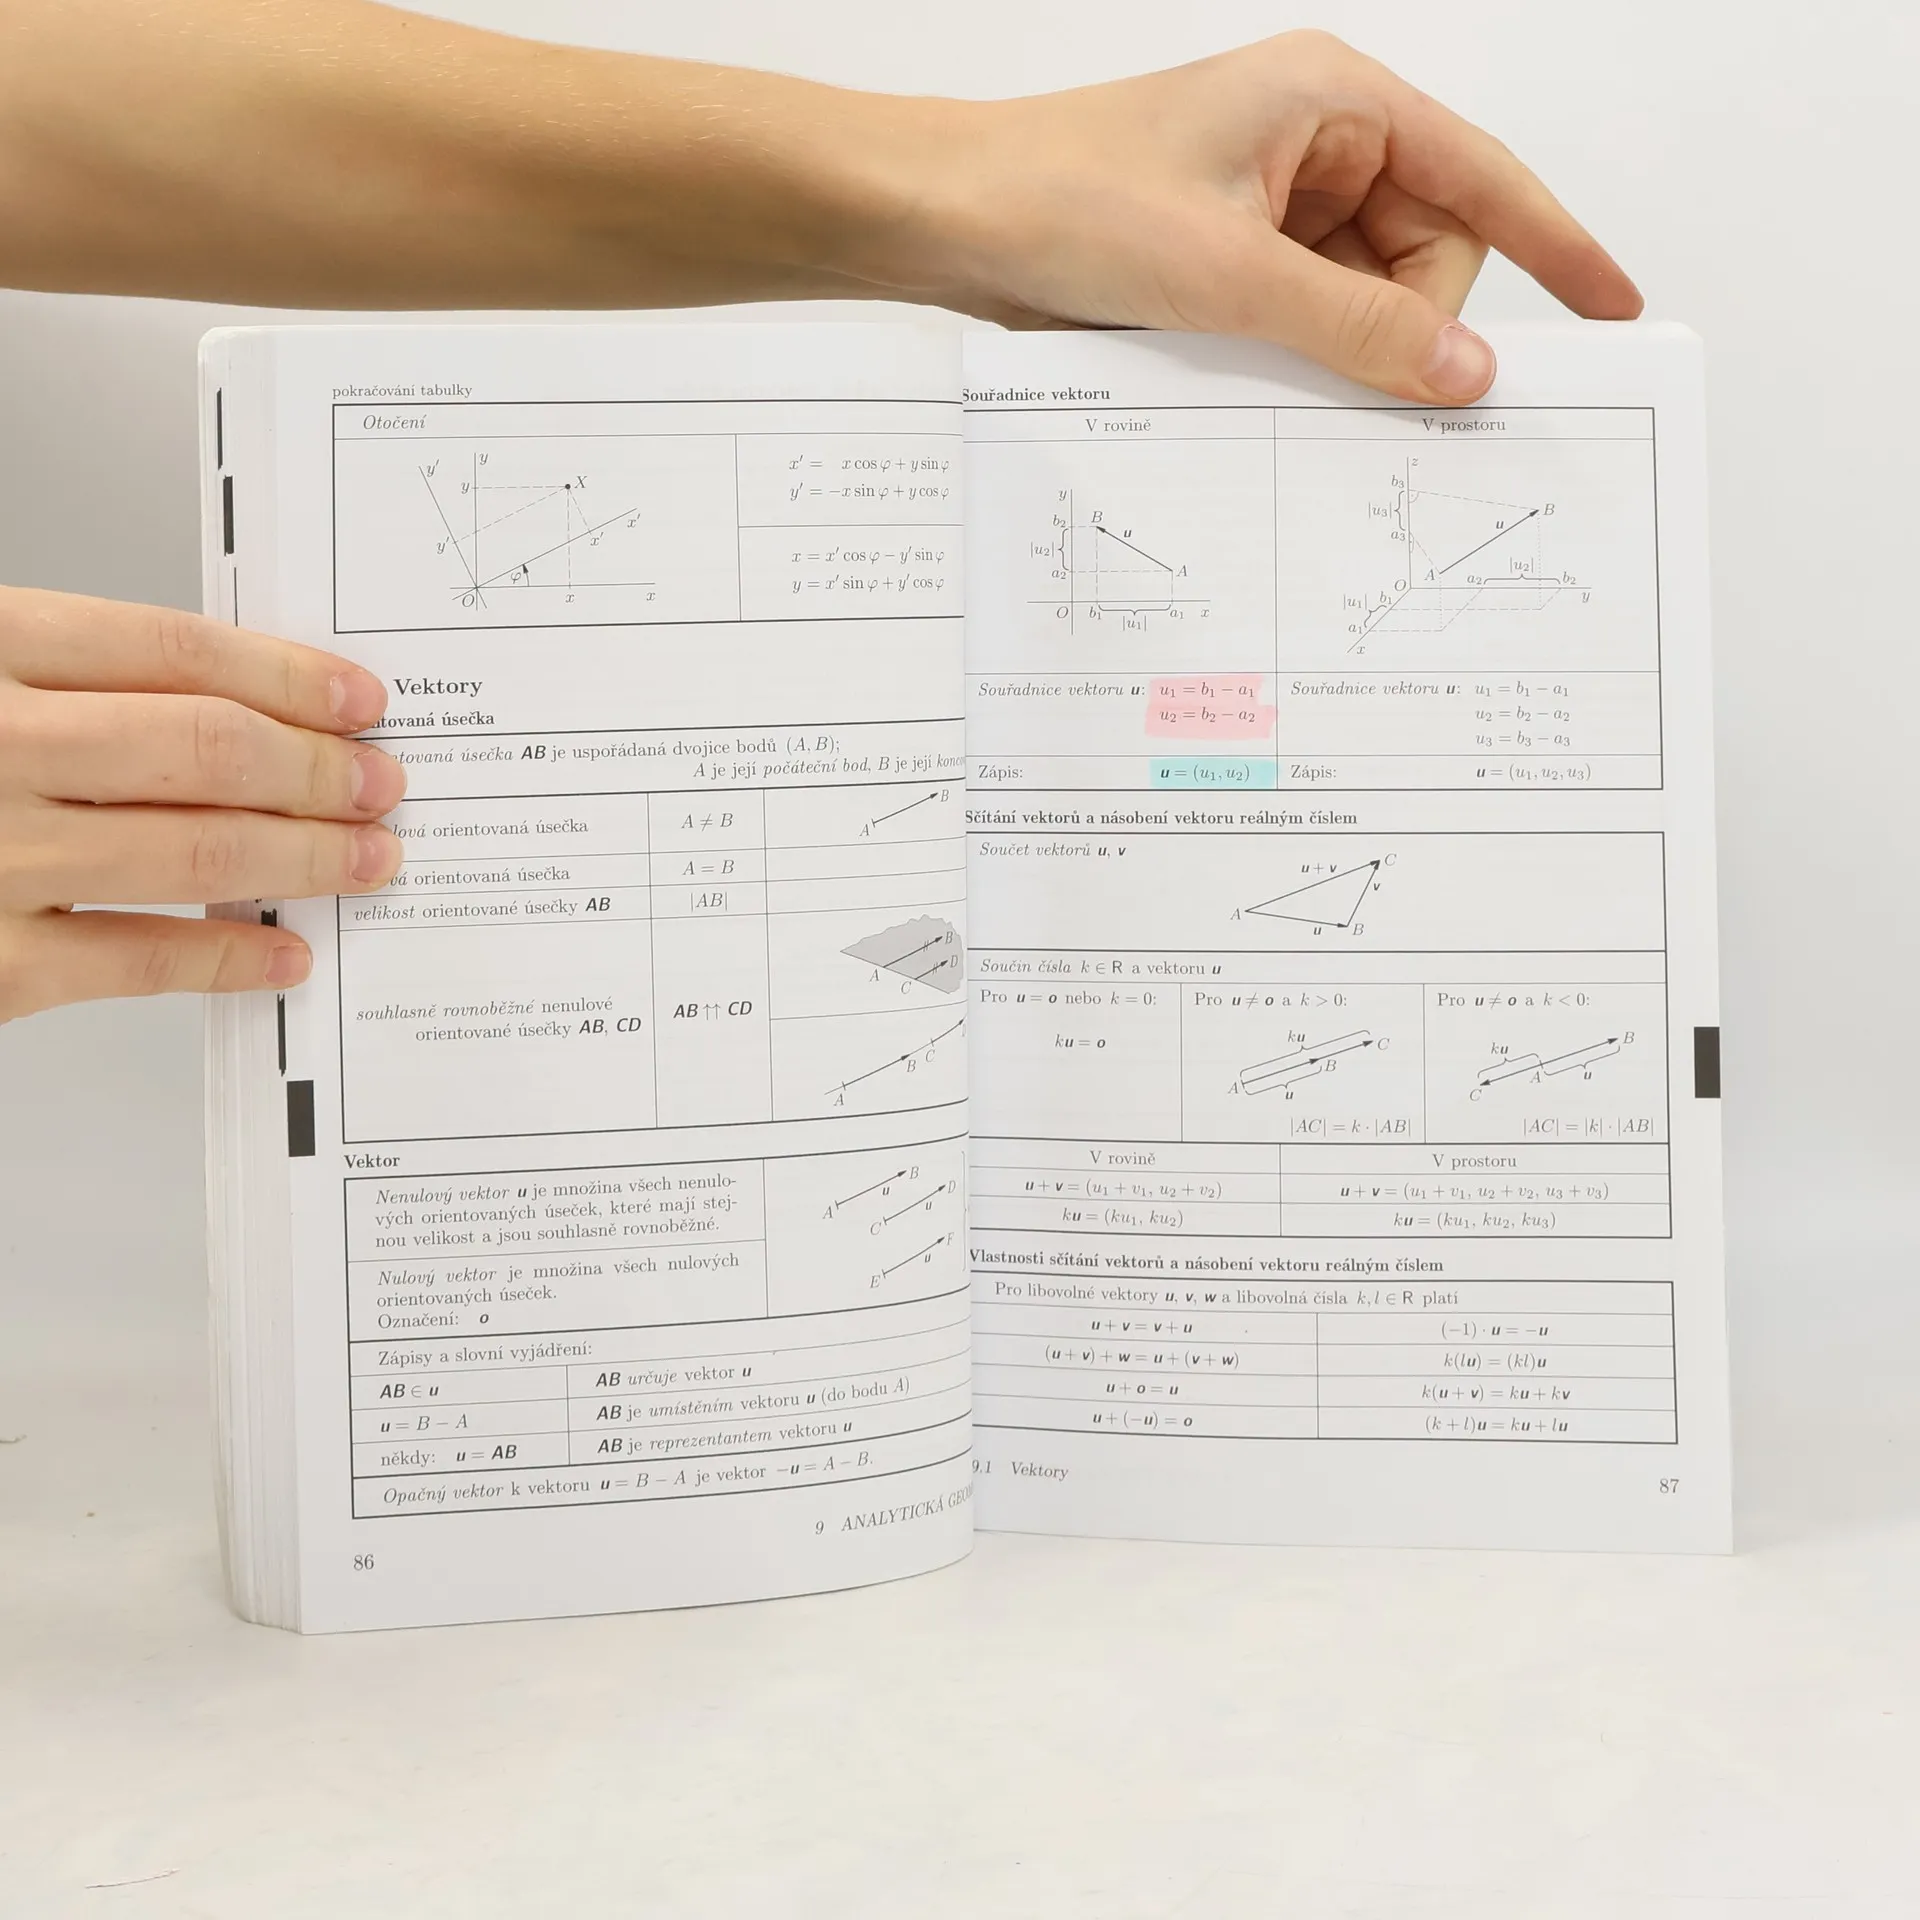 pokračování tabulky
Otočení
y'
y
y
X
x'
y'
x'
φ
O
x
x
x' = x cos φ + y sin φ
y' = −x sin φ + y cos φ
x = x' cos φ − y' sin φ
y = x' sin φ + y' cos φ
Vektory
úsečka
úsečka AB je uspořádaná dvojice bodů (A, B);
A je její počáteční bod, B je její
orientovaná úsečka
A ≠ B
A
B
orientovaná úsečka
A = B
velikost orientované úsečky AB
|AB|
souhlasně rovnoběžné nenulové
orientované úsečky AB, CD
AB ↑↑ CD
A
B
C
D
A
B
C
Vektor
Nenulový vektor u je množina všech nenulo-
vých orientovaných úseček, které mají stej-
nou velikost a jsou souhlasně rovnoběžné.
A
u
B
C
u
D
E
u
F
Nulový vektor je množina všech nulových
orientovaných úseček.
Označení: o
Zápisy a slovní vyjádření:
AB ∈ u
AB určuje vektor u
u = B − A
AB je umístěním vektoru u (do bodu A)
někdy: u = AB
AB je reprezentantem vektoru u
Opačný vektor k vektoru u = B − A je vektor −u = A − B.
9 ANALYTICKÁ
86
Souřadnice vektoru
V rovině
V prostoru
y
b₂
B
u
|u₂|
a₂
A
O
b₁
|u₁|
a₁
x
z
b₃
|u₃|
a₃
B
u
A
O
a₂
|u₂|
b₂
y
|u₁|
b₁
a₁
x
Souřadnice vektoru u: u₁ = b₁ − a₁
u₂ = b₂ − a₂
Souřadnice vektoru u: u₁ = b₁ − a₁
u₂ = b₂ − a₂
u₃ = b₃ − a₃
Zápis: u = (u₁, u₂)
Zápis: u = (u₁, u₂, u₃)
Sčítání vektorů a násobení vektoru reálným číslem
Součet vektorů u, v
u + v
C
v
A
u
B
Součin čísla k ∈ R a vektoru u
Pro u = o nebo k = 0:
ku = o
Pro u ≠ o a k > 0:
ku
C
B
A
u
|AC| = k · |AB|
Pro u ≠ o a k < 0:
ku
B
A
u
C
|AC| = |k| · |AB|
V rovině
V prostoru
u + v = (u₁ + v₁, u₂ + v₂)
u + v = (u₁ + v₁, u₂ + v₂, u₃ + v₃)
ku = (ku₁, ku₂)
ku = (ku₁, ku₂, ku₃)
Vlastnosti sčítání vektorů a násobení vektoru reálným číslem
Pro libovolné vektory u, v, w a libovolná čísla k, l ∈ R platí
u + v = v + u
(−1) · u = −u
(u + v) + w = u + (v + w)
k(lu) = (kl)u
u + o = u
k(u + v) = ku + kv
u + (−u) = o
(k + l)u = ku + lu
9.1 Vektory
87